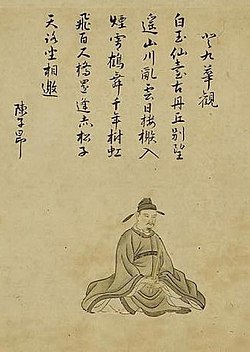 登九華觀
白玉仙臺古丹丘別望
遙山川亂雲日接榭入
煙霄鶴舞千年樹虹
飛百尺橋還逢赤松子
天路坐相邀
陳子昂